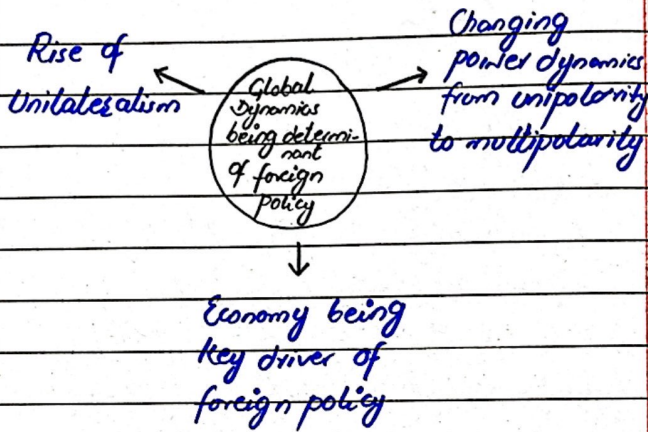 Rise of
Unilateralism
Global
Dynamics
being determi-
nant
of foreign
policy
Changing
power dynamics
from unipolarity
to multipolarity
Economy being
key driver of
foreign policy